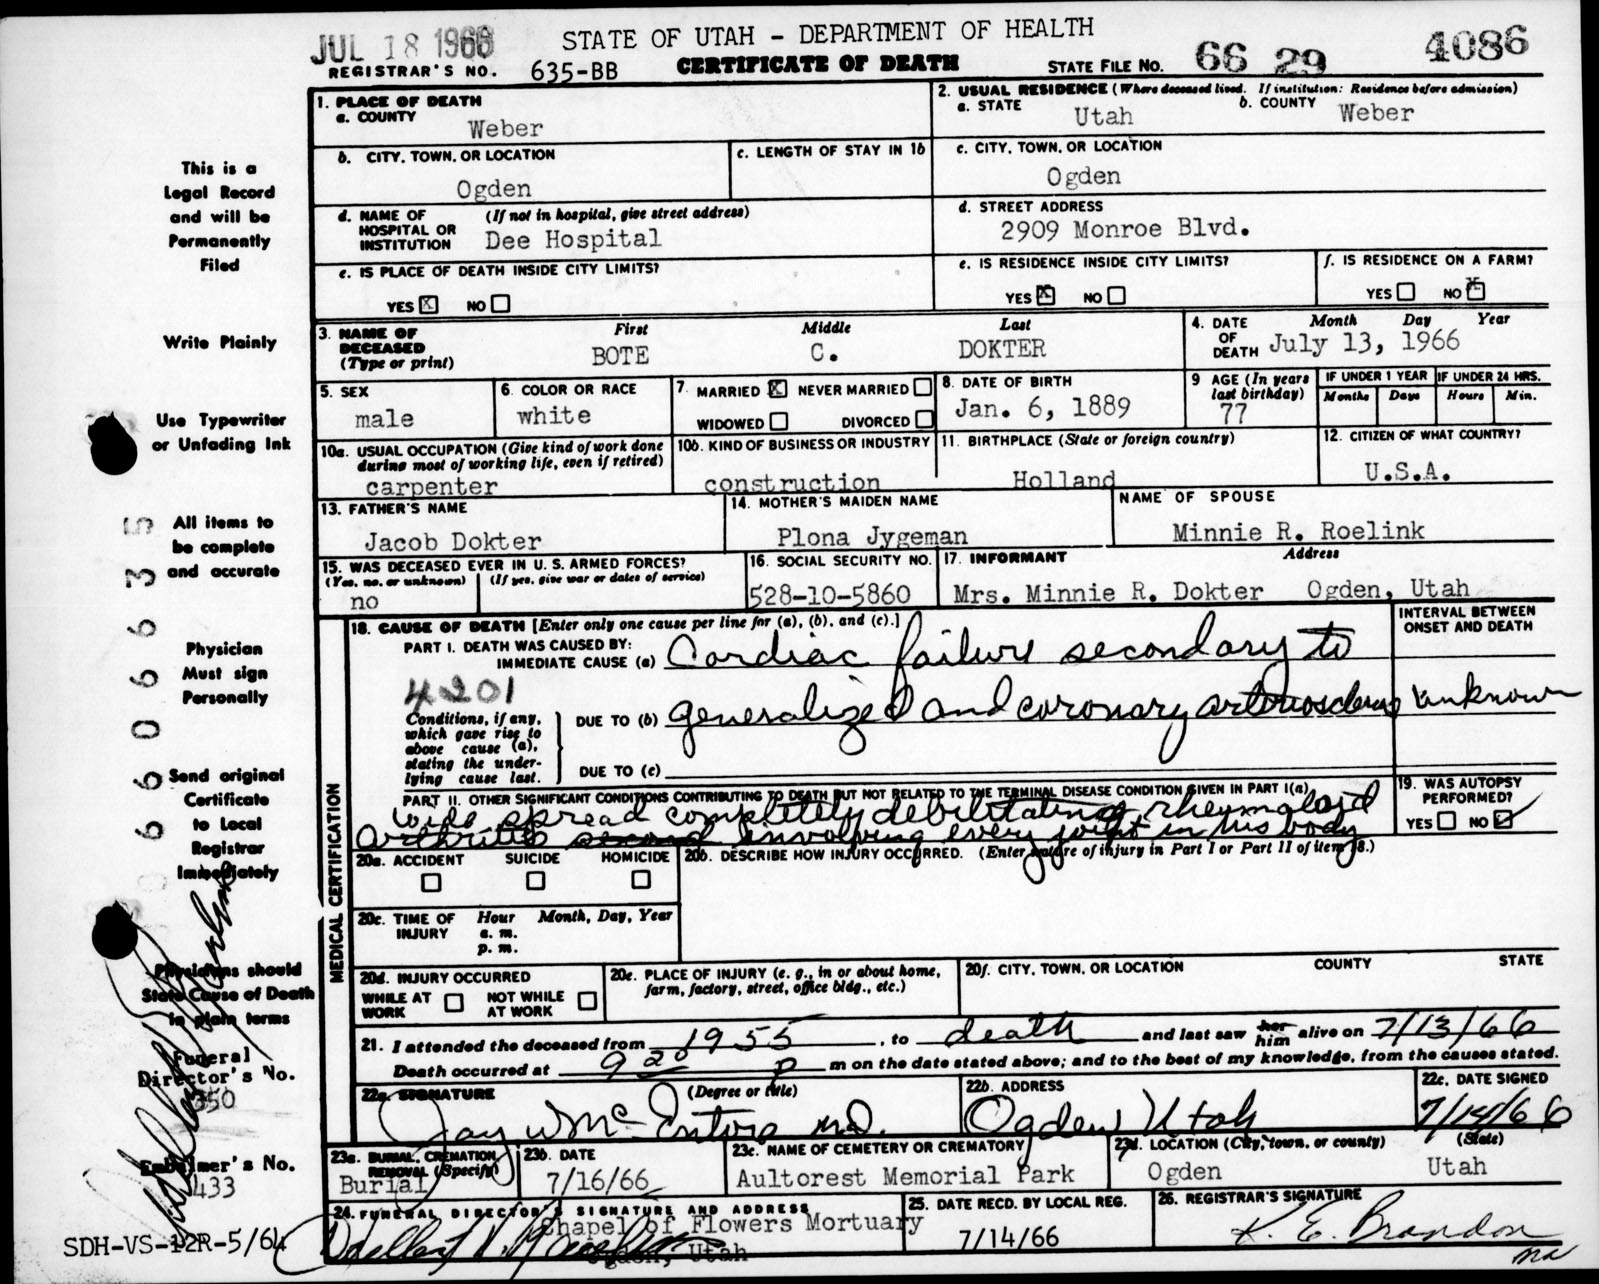 JUL 18 1966
STATE OF UTAH - DEPARTMENT OF HEALTH
REGISTRAR'S NO. 635-BB CERTIFICATE OF DEATH STATE FILE NO. 66 29 4086
1. PLACE OF DEATH
a. COUNTY
Weber
2. USUAL RESIDENCE (Where deceased lived. If institution: Residence before admission)
a. STATE Utah b. COUNTY Weber
b. CITY, TOWN, OR LOCATION
Ogden
c. LENGTH OF STAY IN 1b
c. CITY, TOWN, OR LOCATION
Ogden
d. NAME OF HOSPITAL OR INSTITUTION (If not in hospital, give street address)
Dee Hospital
d. STREET ADDRESS
2909 Monroe Blvd.
e. IS PLACE OF DEATH INSIDE CITY LIMITS?
YES X NO
e. IS RESIDENCE INSIDE CITY LIMITS?
YES X NO
f. IS RESIDENCE ON A FARM?
YES NO X
3. NAME OF DECEASED (Type or print)
First Middle Last
BOTE C. DOKTER
4. DATE OF DEATH Month Day Year
July 13, 1966
5. SEX
male
6. COLOR OR RACE
white
7. MARRIED X NEVER MARRIED
WIDOWED DIVORCED
8. DATE OF BIRTH
Jan. 6, 1889
9 AGE (In years last birthday)
77
IF UNDER 1 YEAR IF UNDER 24 HRS.
Months Days Hours Min.
10a. USUAL OCCUPATION (Give kind of work done during most of working life, even if retired)
carpenter
10b. KIND OF BUSINESS OR INDUSTRY
construction
11. BIRTHPLACE (State or foreign country)
Holland
12. CITIZEN OF WHAT COUNTRY?
U.S.A.
13. FATHER'S NAME
Jacob Dokter
14. MOTHER'S MAIDEN NAME
Plona Jygeman
NAME OF SPOUSE
Minnie R. Roelink
15. WAS DECEASED EVER IN U. S. ARMED FORCES?
(Yes, no, or unknown) (If yes, give war or dates of service)
no
16. SOCIAL SECURITY NO.
528-10-5860
17. INFORMANT Address
Mrs. Minnie R. Dokter Ogden, Utah
18. CAUSE OF DEATH [Enter only one cause per line for (a), (b), and (c).]
INTERVAL BETWEEN ONSET AND DEATH
PART I. DEATH WAS CAUSED BY:
IMMEDIATE CAUSE (a) Cardiac failure secondary to
4201
Conditions, if any, which gave rise to above cause (a), stating the underlying cause last.
DUE TO (b) generalized and coronary arteriosclerosis unknown
DUE TO (c)
PART II. OTHER SIGNIFICANT CONDITIONS CONTRIBUTING TO DEATH BUT NOT RELATED TO THE TERMINAL DISEASE CONDITION GIVEN IN PART I(a)
wide spread completely debilitating rheumatoid
arthritis involving every joint in his body
19. WAS AUTOPSY PERFORMED?
YES NO ✓
20a. ACCIDENT SUICIDE HOMICIDE
20b. DESCRIBE HOW INJURY OCCURRED. (Enter nature of injury in Part I or Part II of item 18.)
20c. TIME OF INJURY Hour Month, Day, Year
a. m.
p. m.
20d. INJURY OCCURRED
WHILE AT WORK NOT WHILE AT WORK
20e. PLACE OF INJURY (e. g., in or about home, farm, factory, street, office bldg., etc.)
20f. CITY, TOWN, OR LOCATION COUNTY STATE
21. I attended the deceased from 1955, to death and last saw her him alive on 7/13/66
Death occurred at 9 20 p m on the date stated above; and to the best of my knowledge, from the causes stated.
22a. SIGNATURE (Degree or title)
Jay W Mc Entire MD.
22b. ADDRESS
Ogden Utah
22c. DATE SIGNED
7/14/66
23a. BURIAL, CREMATION, REMOVAL (Specify)
Burial
23b. DATE
7/16/66
23c. NAME OF CEMETERY OR CREMATORY
Aultorest Memorial Park
23d. LOCATION (City, town, or county) (State)
Ogden Utah
24. FUNERAL DIRECTOR'S SIGNATURE AND ADDRESS
Chapel of Flowers Mortuary
Ogden, Utah
25. DATE RECD. BY LOCAL REG.
7/14/66
26. REGISTRAR'S SIGNATURE
K. E. Brandon
MEDICAL CERTIFICATION
This is a
Legal Record
and will be
Permanently
Filed
Write Plainly
Use Typewriter
or Unfading Ink
All items to
be complete
and accurate
Physician
Must sign
Personally
Send original
Certificate
to Local
Registrar
Immediately
Physicians should
State Cause of Death
in plain terms
Funeral
Director's No.
350
Embalmer's No.
433
SDH-VS-12R-5/64